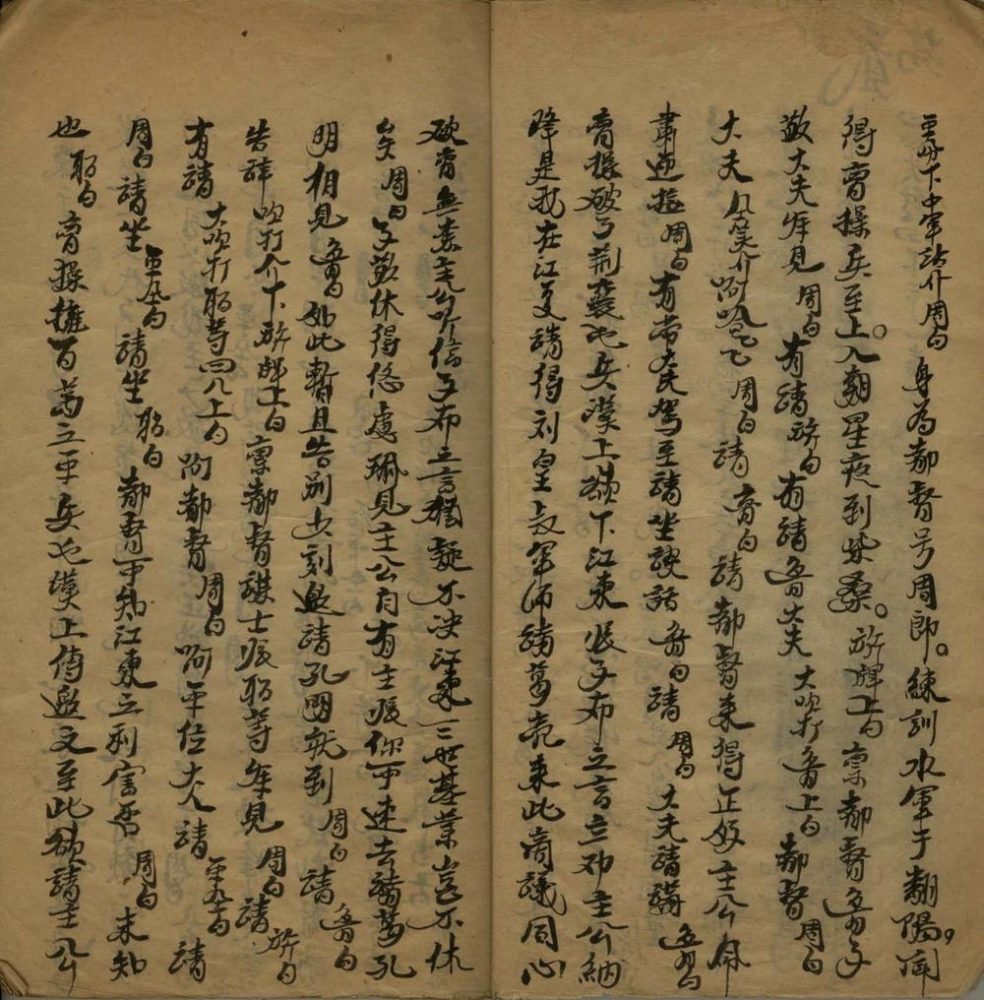 下中軍站介周白身為都督号周郎。練訓水軍于翻陽。闻
得曹操兵至上。入朝星夜到柴桑。旂牌上白禀都督魯子
敬大夫在見周白有請旂白有請魯大夫大吹打魯上白都督周白
大夫 笑介呵哈 周白請魯白請都督来得正好主公命
肅迎接周白有劳大夫駕至請坐談話魯白請周白大夫請講魯白
曹操破了荆襄屯兵漢上欲下江東張子布立言立劝主公納
降是我在江夏請得刘皇叔軍师諸葛亮来此商議同心
破曹無奈主公听信子布之言猶疑不决江東三世基業豈不休
矣周白子敬休得悠慮 見主公自有主張你可速去諸葛孔
明相見魯白如此暫且告别少刻邀請孔明就到周白請魯白
告辞吹打介下旂牌上白禀都督謀士張昭等在見周白請旂白
有請大吹打昭等四人上白呵都督周白呵平位大人請 白請
周白請坐 白請坐昭白都督可知江東之利害否周白未知
也昭白曹操擁百萬之 兵屯漢上傳邀文至此欲請主公